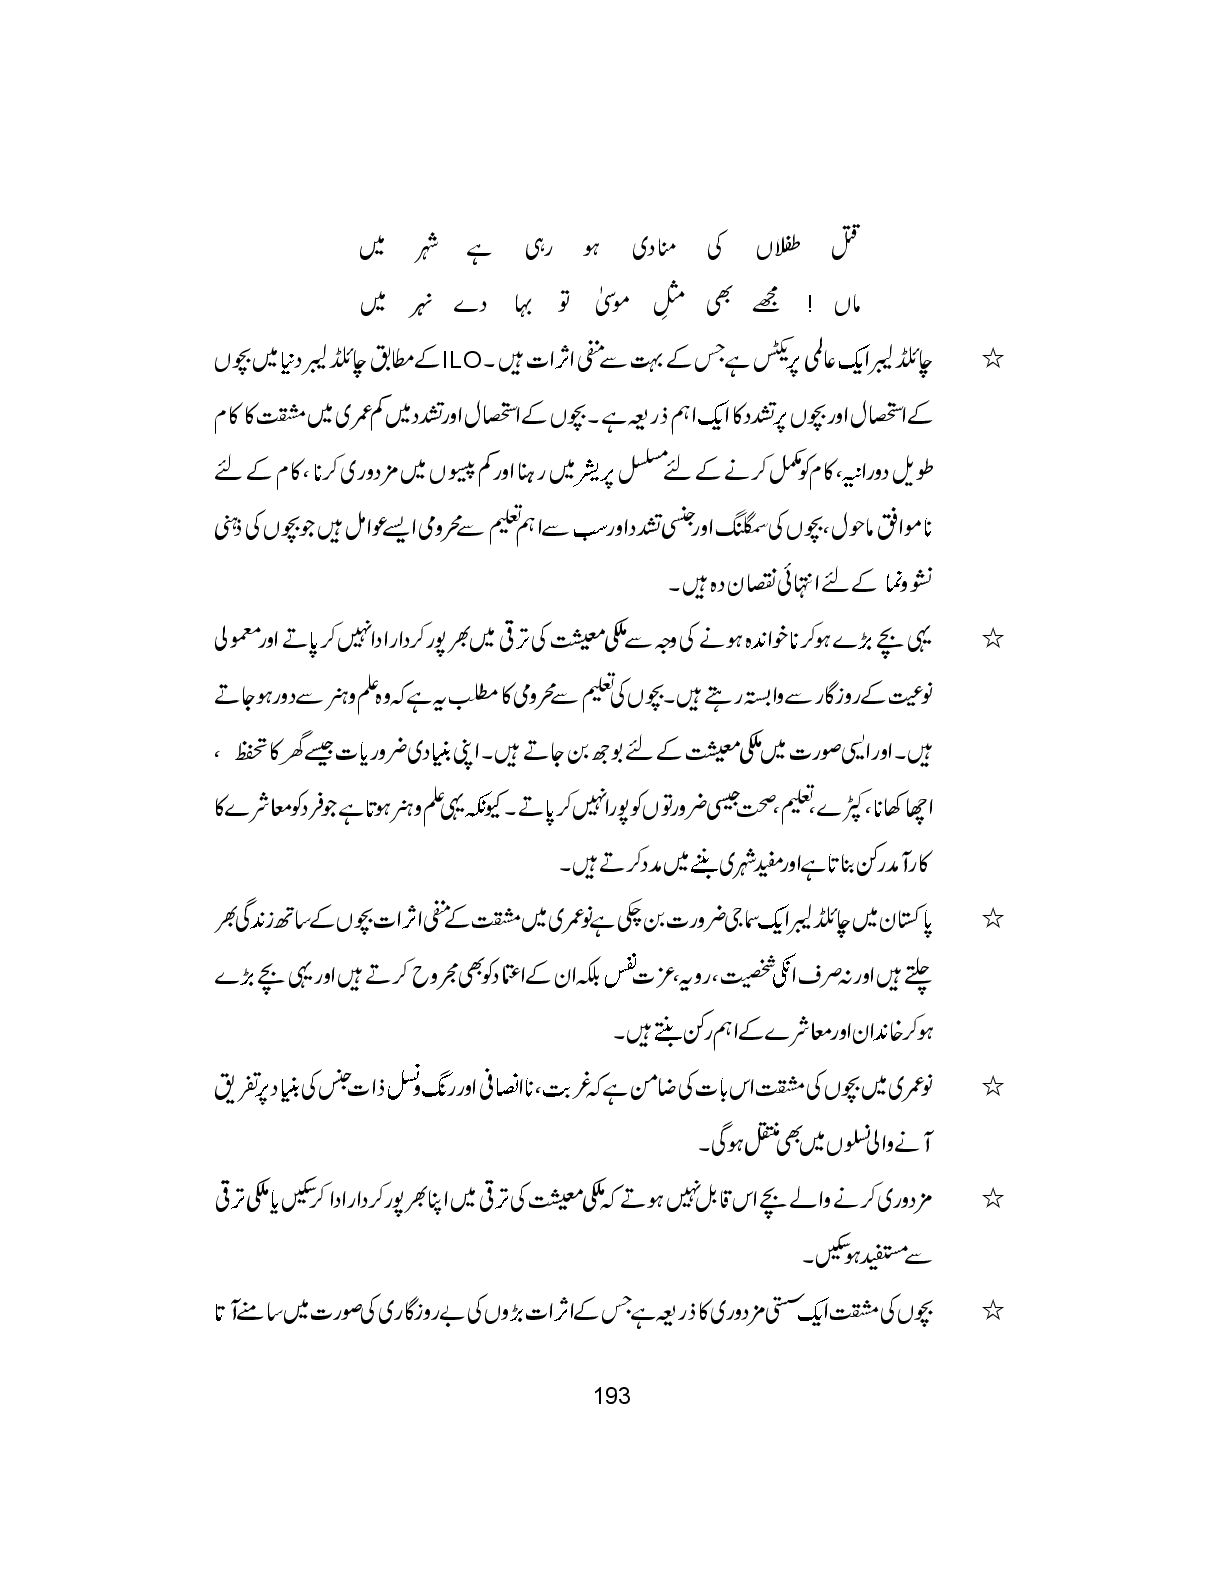 قتل طفلاں کی منادی ہو رہی ہے شہر میں
ماں ! مجھے بھی مثلِ موسیٰ تو بہا دے نہر میں
☆ چائلڈ لیبر ایک عالمی پریکٹس ہے جس کے بہت سے منفی اثرات ہیں۔ ILO کے مطابق چائلڈ لیبر دنیا میں بچوں
کے استحصال اور بچوں پر تشدد کا ایک اہم ذریعہ ہے۔ بچوں کے استحصال اور تشدد میں کم عمری میں مشقت کا کام
طویل دورانیہ، کام کو مکمل کرنے کے لئے مسلسل پریشر میں رہنا اور کم پیسوں میں مزدوری کرنا، کام کے لئے
ناموافق ماحول، بچوں کی سمگلنگ اور جنسی تشدد اور سب سے اہم تعلیم سے محرومی ایسے عوامل ہیں جو بچوں کی ذہنی
نشوونما کے لئے انتہائی نقصان دہ ہیں۔
☆ یہی بچے بڑے ہو کر ناخواندہ ہونے کی وجہ سے ملکی معیشت کی ترقی میں بھرپور کردار ادا نہیں کر پاتے اور معمولی
نوعیت کے روزگار سے وابستہ رہتے ہیں۔ بچوں کی تعلیم سے محرومی کا مطلب یہ ہے کہ وہ علم و ہنر سے دور ہو جاتے
ہیں۔ اور ایسی صورت میں ملکی معیشت کے لئے بوجھ بن جاتے ہیں۔ اپنی بنیادی ضروریات جیسے گھر کا تحفظ ،
اچھا کھانا، کپڑے، تعلیم، صحت جیسی ضرورتوں کو پورا نہیں کر پاتے۔ کیونکہ یہی علم و ہنر ہوتا ہے جو فرد کو معاشرے کا
کارآمد رکن بناتا ہے اور مفید شہری بننے میں مدد کرتے ہیں۔
☆ پاکستان میں چائلڈ لیبر ایک سماجی ضرورت بن چکی ہے نوعمری میں مشقت کے منفی اثرات بچوں کے ساتھ زندگی بھر
چلتے ہیں اور نہ صرف انکی شخصیت، رویہ، عزت نفس بلکہ ان کے اعتماد کو بھی مجروح کرتے ہیں اور یہی بچے بڑے
ہو کر خاندان اور معاشرے کے اہم رکن بنتے ہیں۔
☆ نوعمری میں بچوں کی مشقت اس بات کی ضامن ہے کہ غربت، ناانصافی اور رنگ و نسل ذات جنس کی بنیاد پر تفریق
آنے والی نسلوں میں بھی منتقل ہوگی۔
☆ مزدوری کرنے والے بچے اس قابل نہیں ہوتے کہ ملکی معیشت کی ترقی میں اپنا بھرپور کردار ادا کر سکیں یا ملکی ترقی
سے مستفید ہو سکیں۔
☆ بچوں کی مشقت ایک سستی مزدوری کا ذریعہ ہے جس کے اثرات بڑوں کی بے روزگاری کی صورت میں سامنے آتا
193